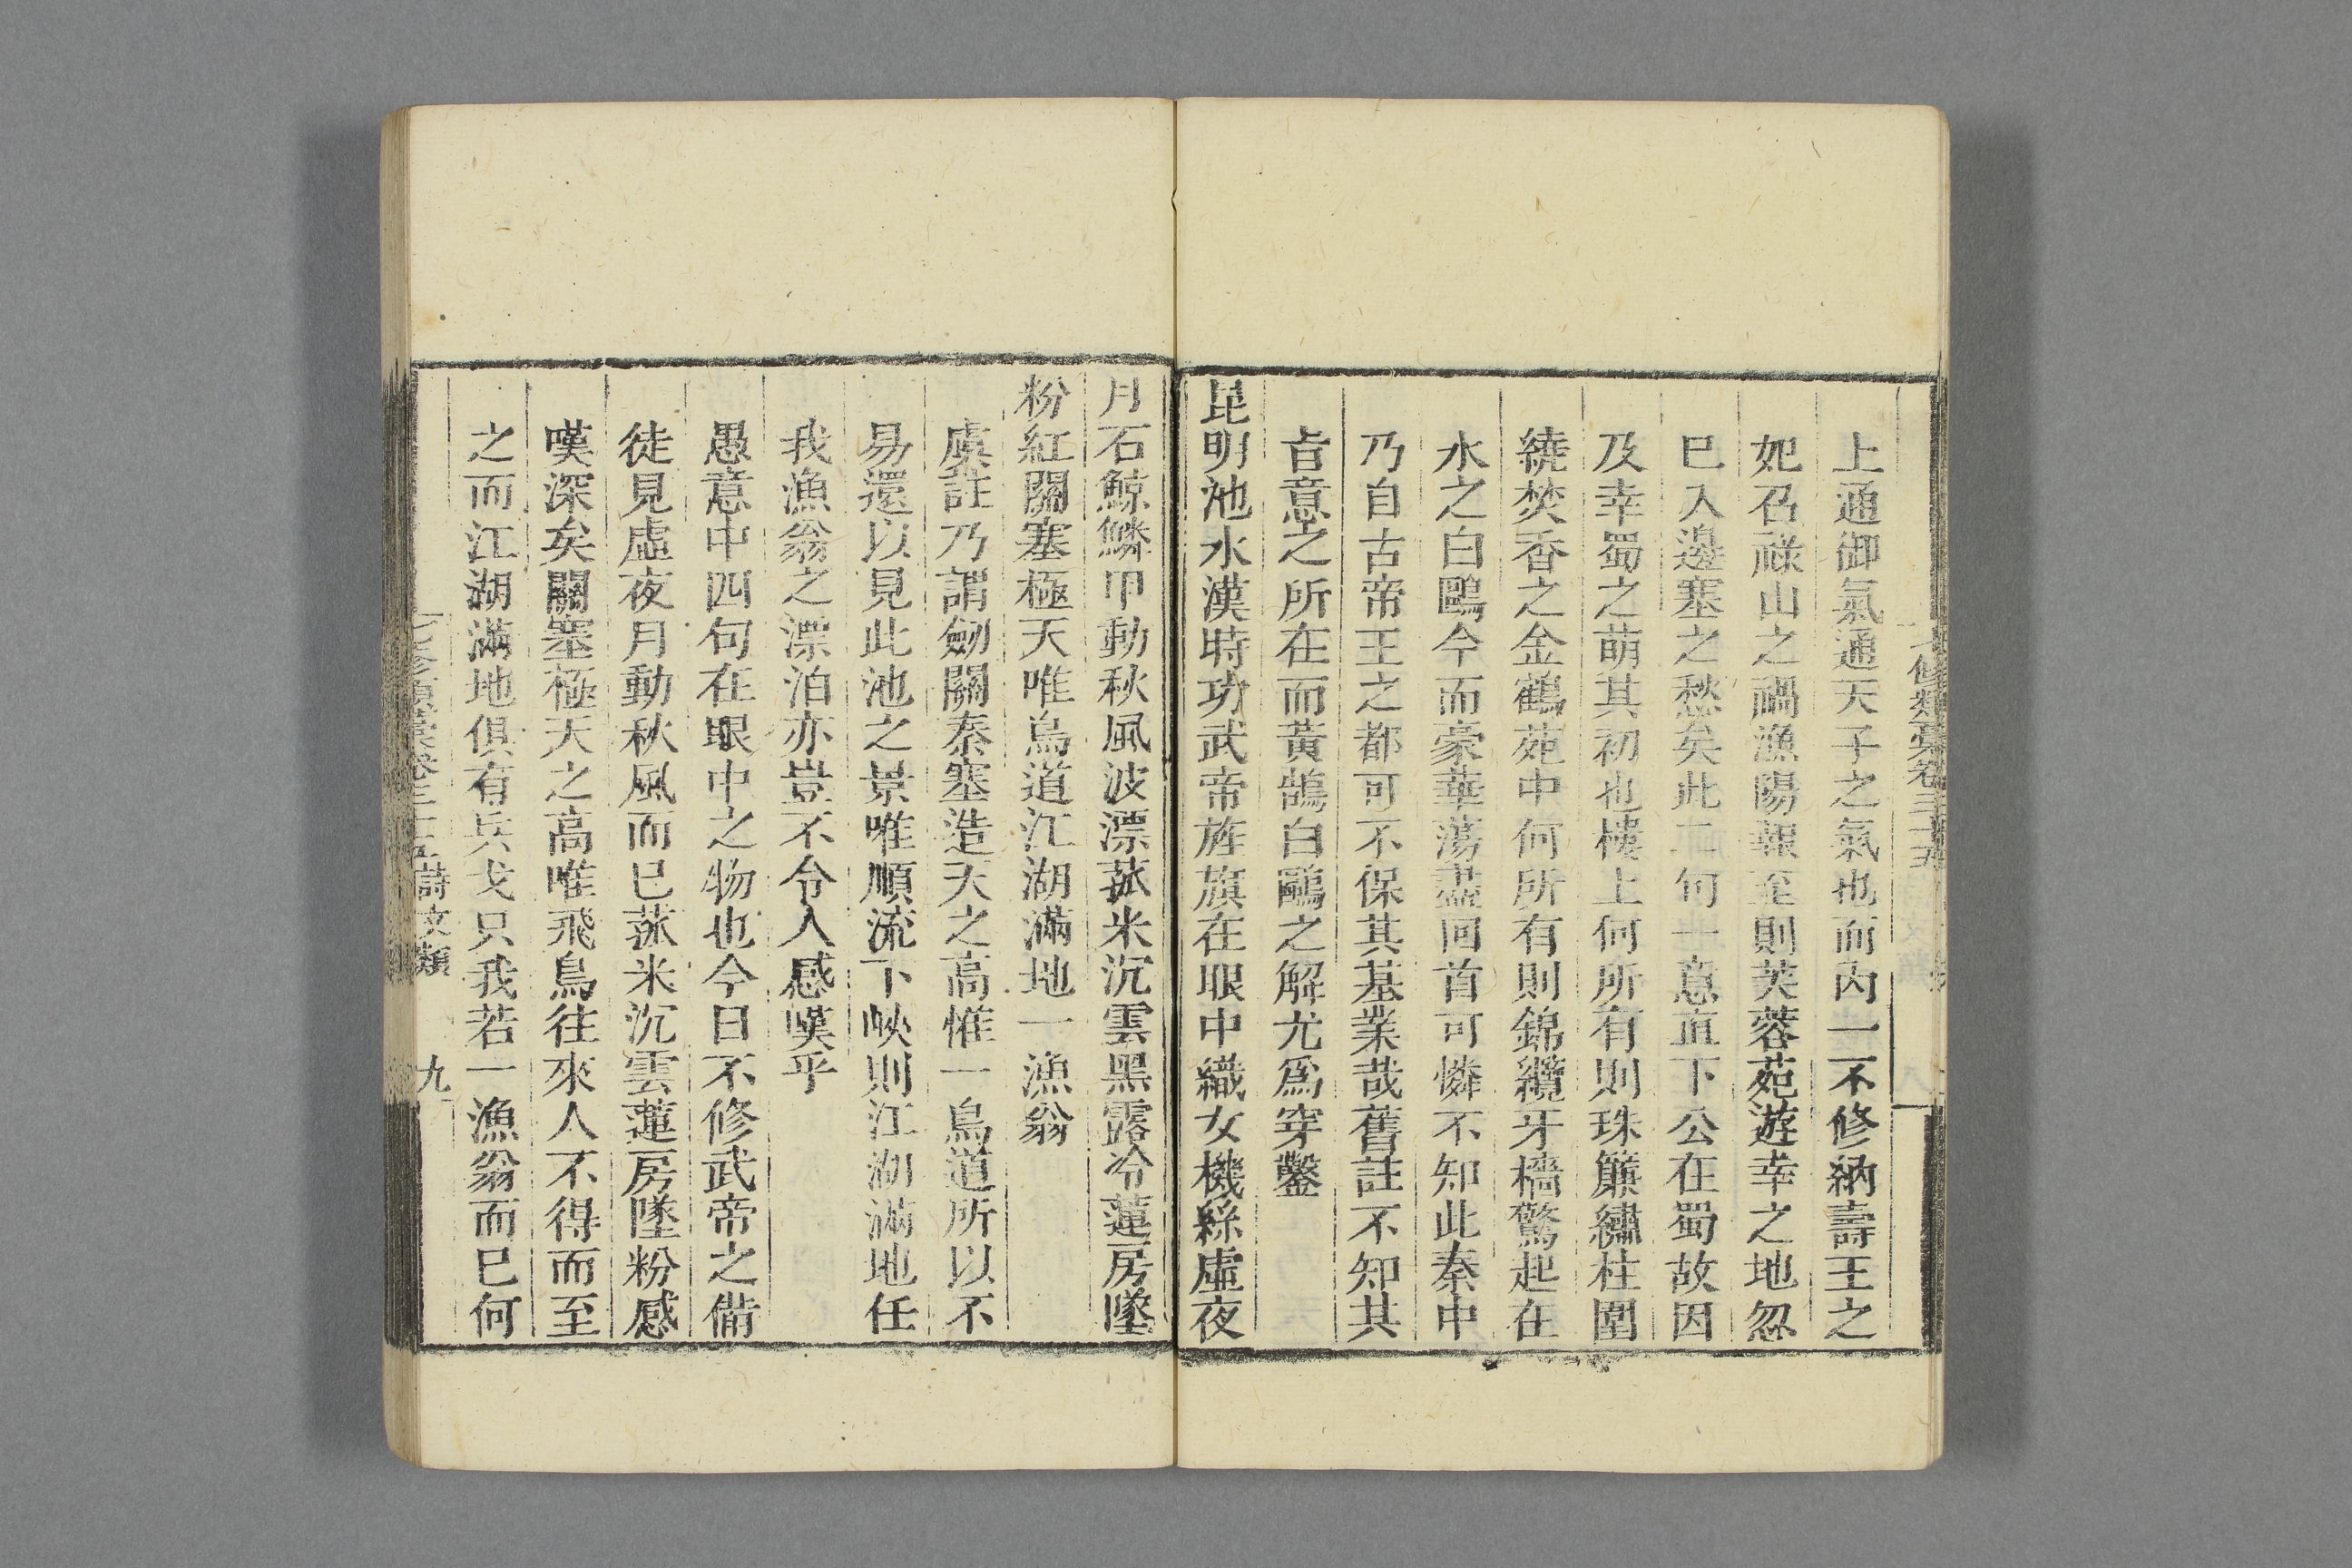 七修類稾卷三十五
上通御氣通天子之氣也而內一不修納壽王之
妃召祿山之禍漁陽報至則芙蓉苑遊幸之地忽
巳入邊塞之愁矣此二句一意直下公在蜀故因
及幸蜀之萌其初也樓上何所有則珠簾繡柱圍
繞焚香之金鶴苑中何所有則錦纜牙檣驚起在
水之白鷗今而豪華蕩盡回首可憐不知此秦中
乃自古帝王之都可不保其基業哉舊註不知其
㫖意之所在而黃鵠白鷗之解尤爲穿鑿
昆明池水漢時功武帝旌旗在眼中織女機絲虛夜
月石鯨鱗甲動秋風波漂菰米沉雲黑露冷蓮房墜
粉紅關塞極天唯鳥道江湖滿地一漁翁
虞註乃謂劒關秦塞造天之高惟一鳥道所以不
易還以見此池之景唯順流下峽則江湖滿地任
我漁翁之漂泊亦豈不令人感嘆乎
愚意中四句在眼中之物也今日不修武帝之備
徒見虛夜月動秋風而巳菰米沉雲蓮房墜粉感
嘆深矣關塞極天之高唯飛鳥往來人不得而至
之而江湖滿地俱有兵戈只我若一漁翁而巳何
七修類稾卷三十五 詩文類 九